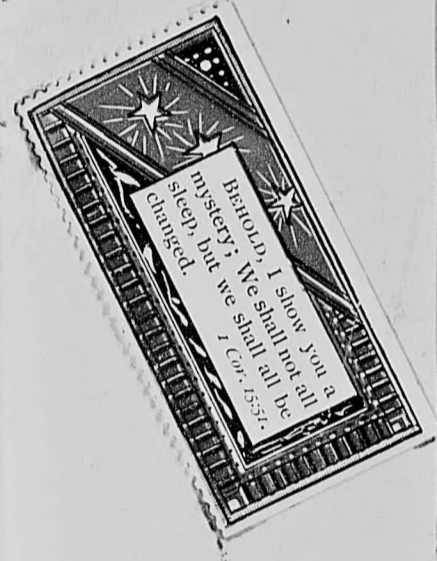 BEHOLD, I show you a
mystery; We shall not all
sleep, but we shall all be
changed.
1 Cor. 15:51.